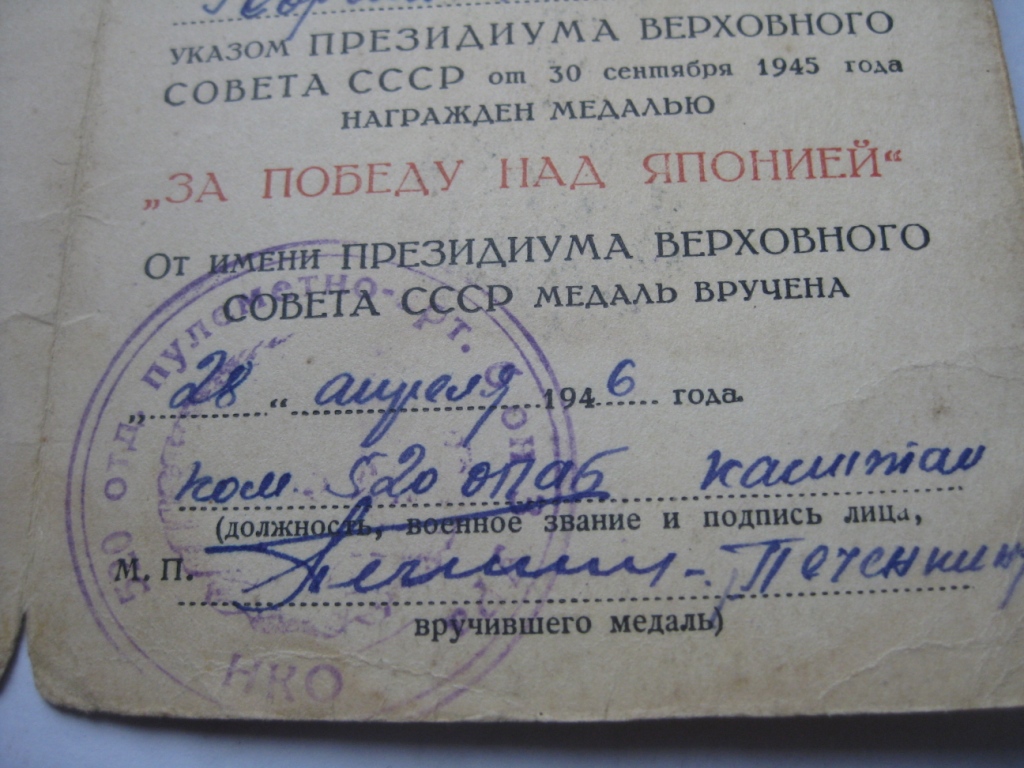 УКАЗОМ ПРЕЗИДИУМА ВЕРХОВНОГО
СОВЕТА СССР от 30 сентября 1945 года
НАГРАЖДЕН МЕДАЛЬЮ
„ЗА ПОБЕДУ НАД ЯПОНИЕЙ“
От имени ПРЕЗИДИУМА ВЕРХОВНОГО
СОВЕТА СССР МЕДАЛЬ ВРУЧЕНА
„28“ апреля 1946 года.
ком. 520 ОПАБ капитан
(должность, военное звание и подпись лица,
М. П. Печенкин
вручившего медаль)
отд. пулеметно-арт.
НКО